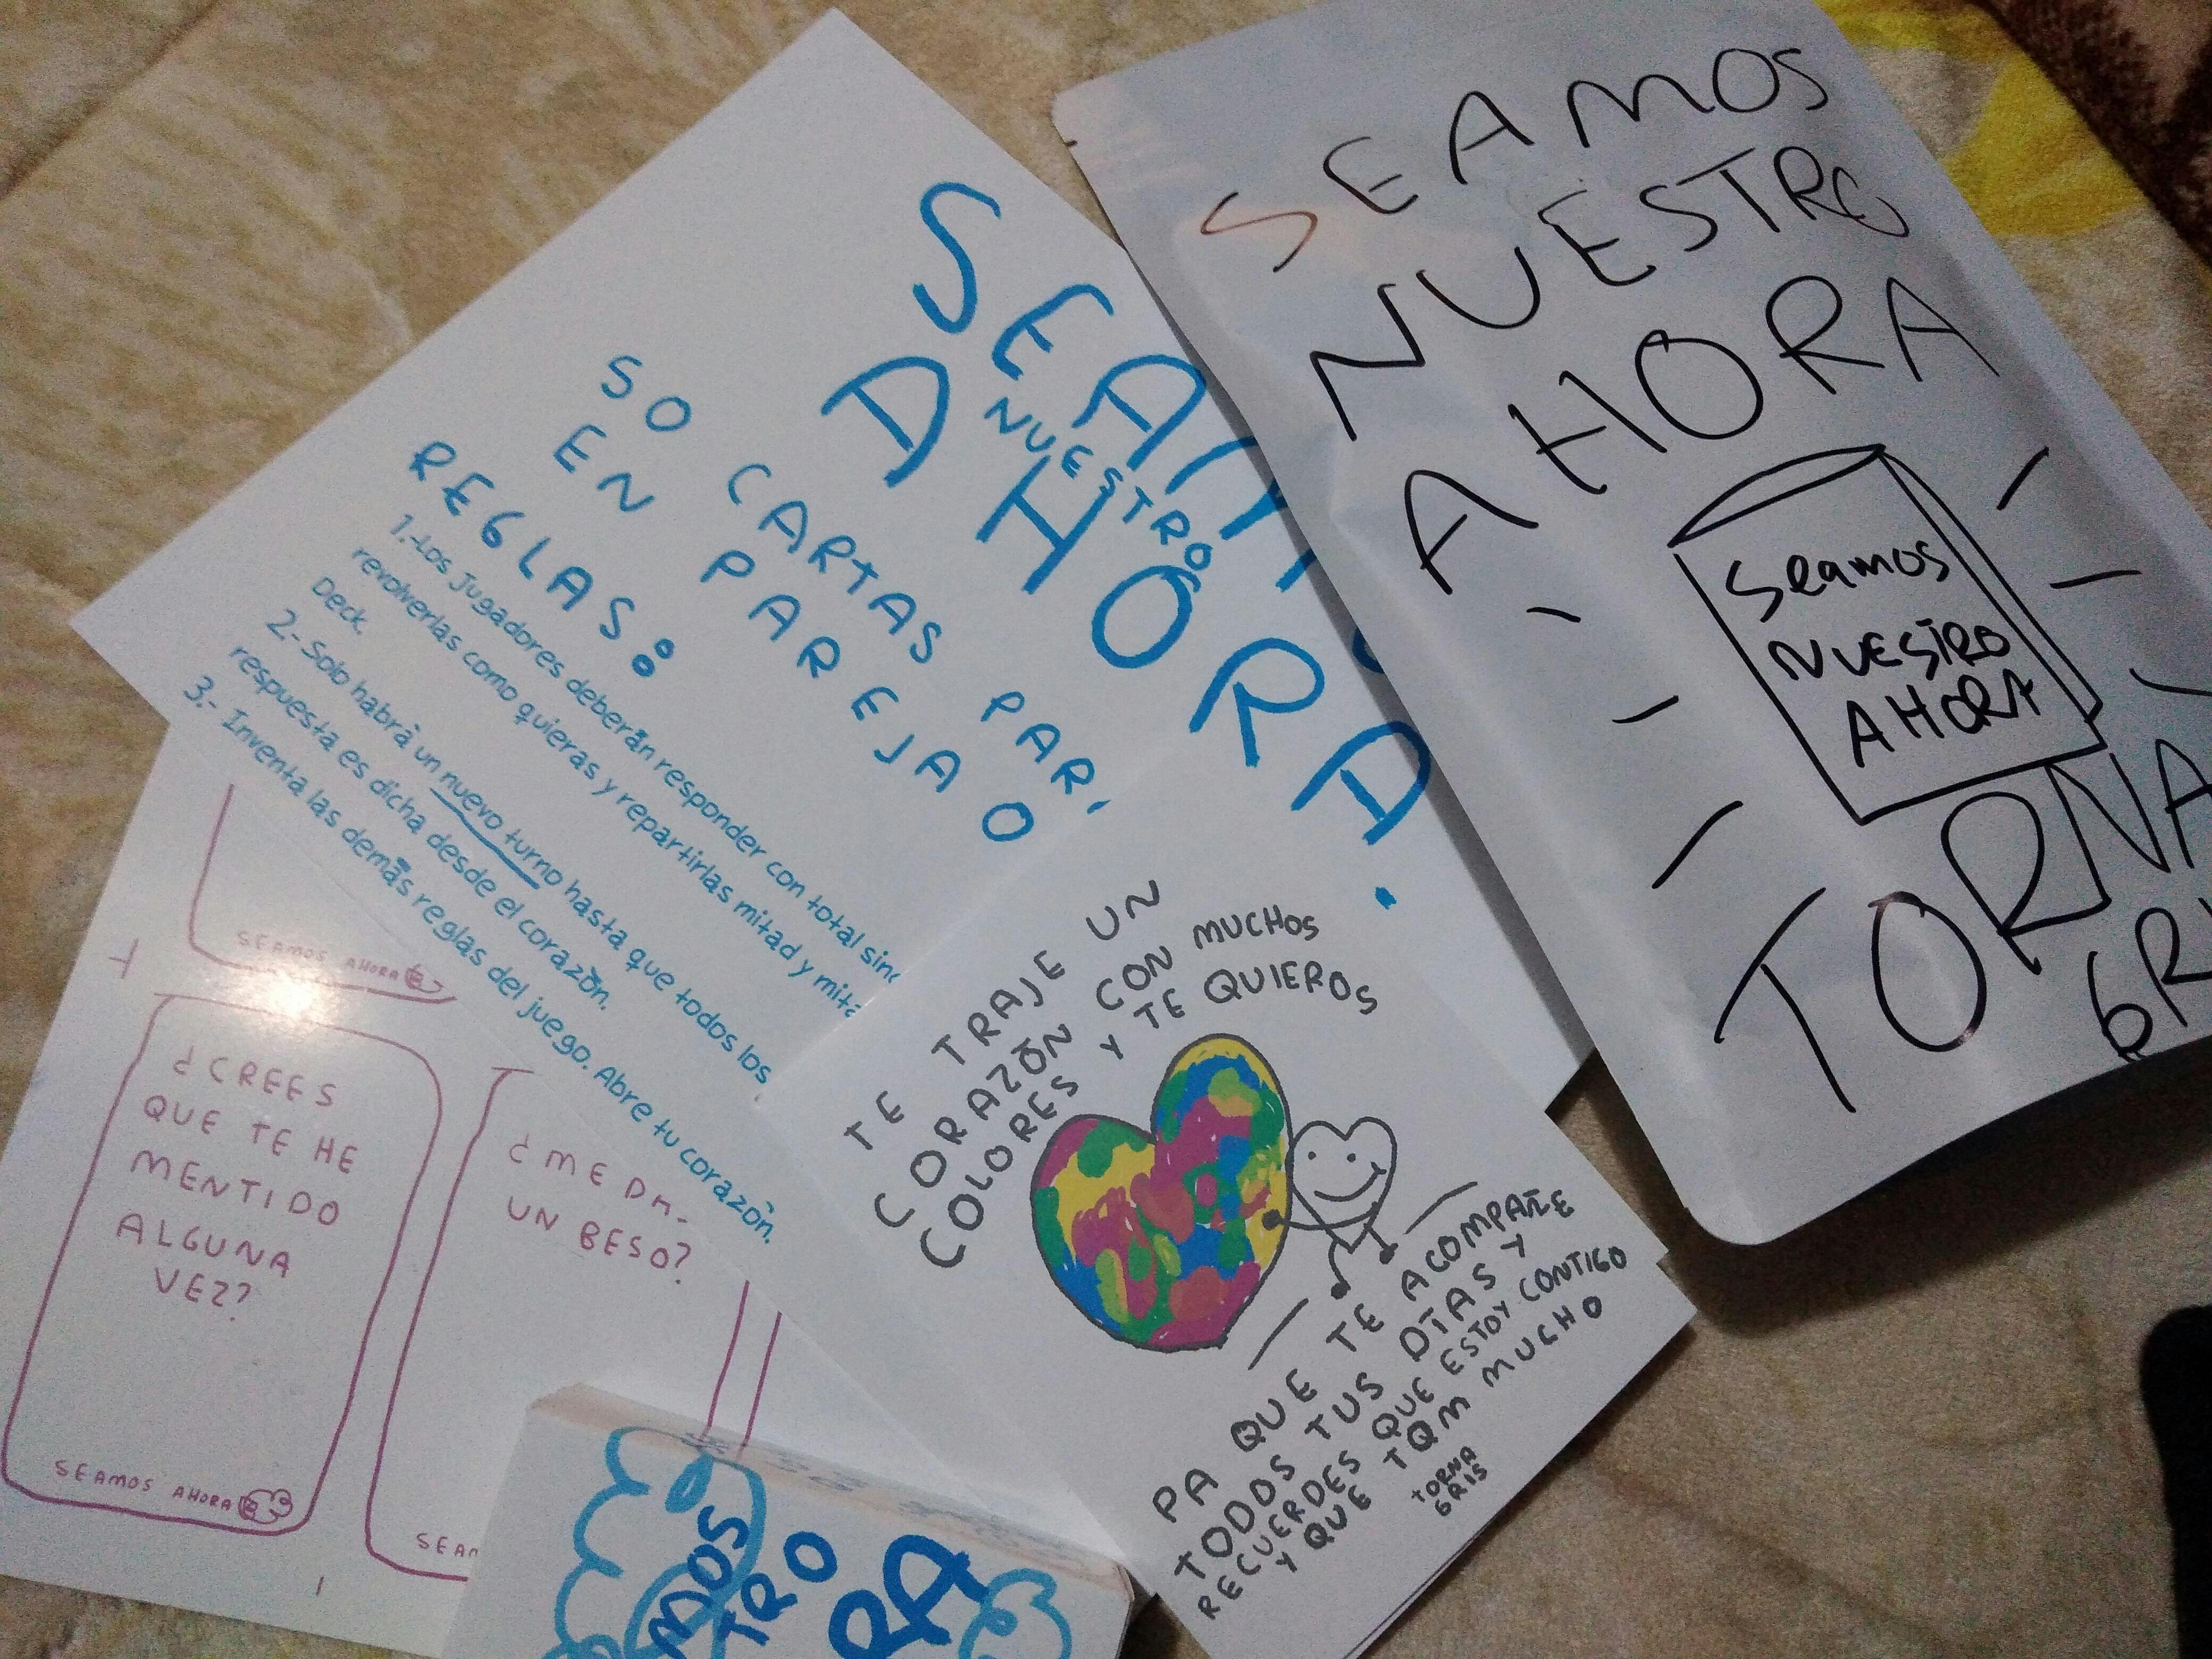 SEAMOS
NUESTRO
AHORA
Seamos
NUESTRO
AHORA
TORNA
SEAM
NUESTRO
AHORA.
50 CARTAS PAR
EN PAREJA O
REGLAS:
1.-Los jugadores deberán responder con total
revolverlas como quieras y repartirlas mitad y
Deck.
2.- Solo habrá un nuevo turno hasta que todos los
respuesta es dicha desde el corazón.
3.- Inventa las demás reglas del juego. Abre tu corazón.
TE TRAJE UN
CORAZÓN CON MUCHOS
COLORES Y TE QUIEROS
PA QUE TE ACOMPAÑE
TODOS TUS DÍAS Y
RECUERDES QUE ESTOY CONTIGO
Y QUE TQM MUCHO
TORNA
GRIS
SEAMOS AHORA
¿CREES
QUE TE HE
MENTIDO
ALGUNA
VEZ?
SEAMOS AHORA
¿ME DA
UN BESO?
SEAM
MOS
TRO
RA